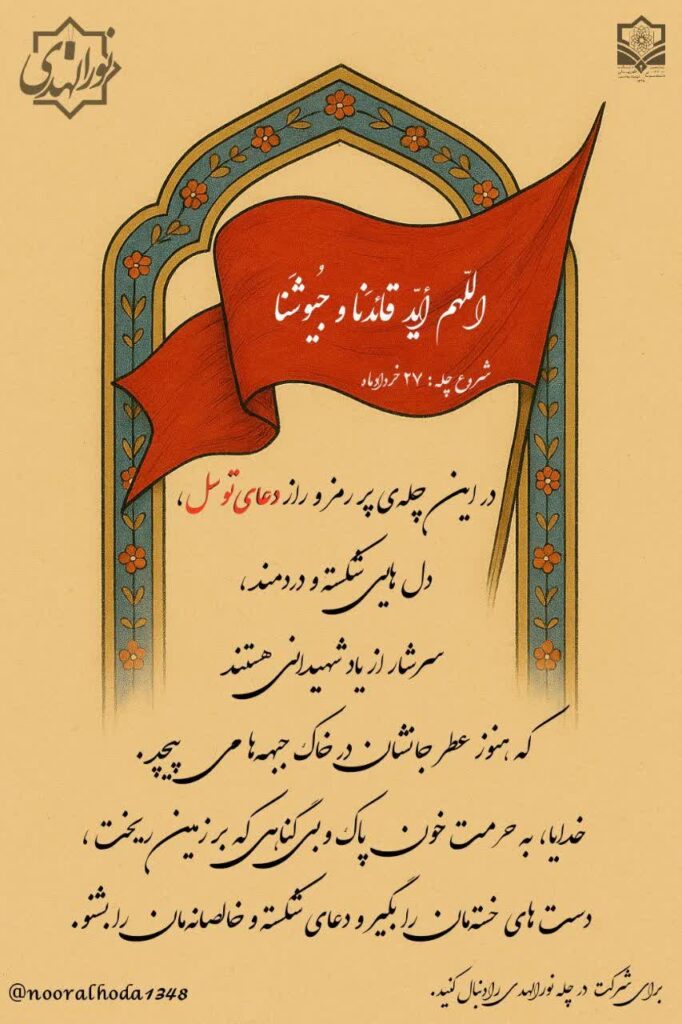 نورالهدی
اللّهم أیّد قائدَنا و جُیوشَنا
شروع چله: ۲۷ خردادماه
در این چله‌ی پر رمز و راز دعای توسل،
دل هایی شکسته و دردمند،
سرشار از یاد شهیدانی هستند
که هنوز عطر جانشان در خاک جبهه‌ها می پیچد.
خدایا، به حرمت خون پاک و بی گناهی که بر زمین ریخت،
دست های خسته‌مان را بگیر و دعای شکسته و خالصانه‌مان را بشنو.
برای شرکت در چله نورالهدی را دنبال کنید.
@nooralhoda1348